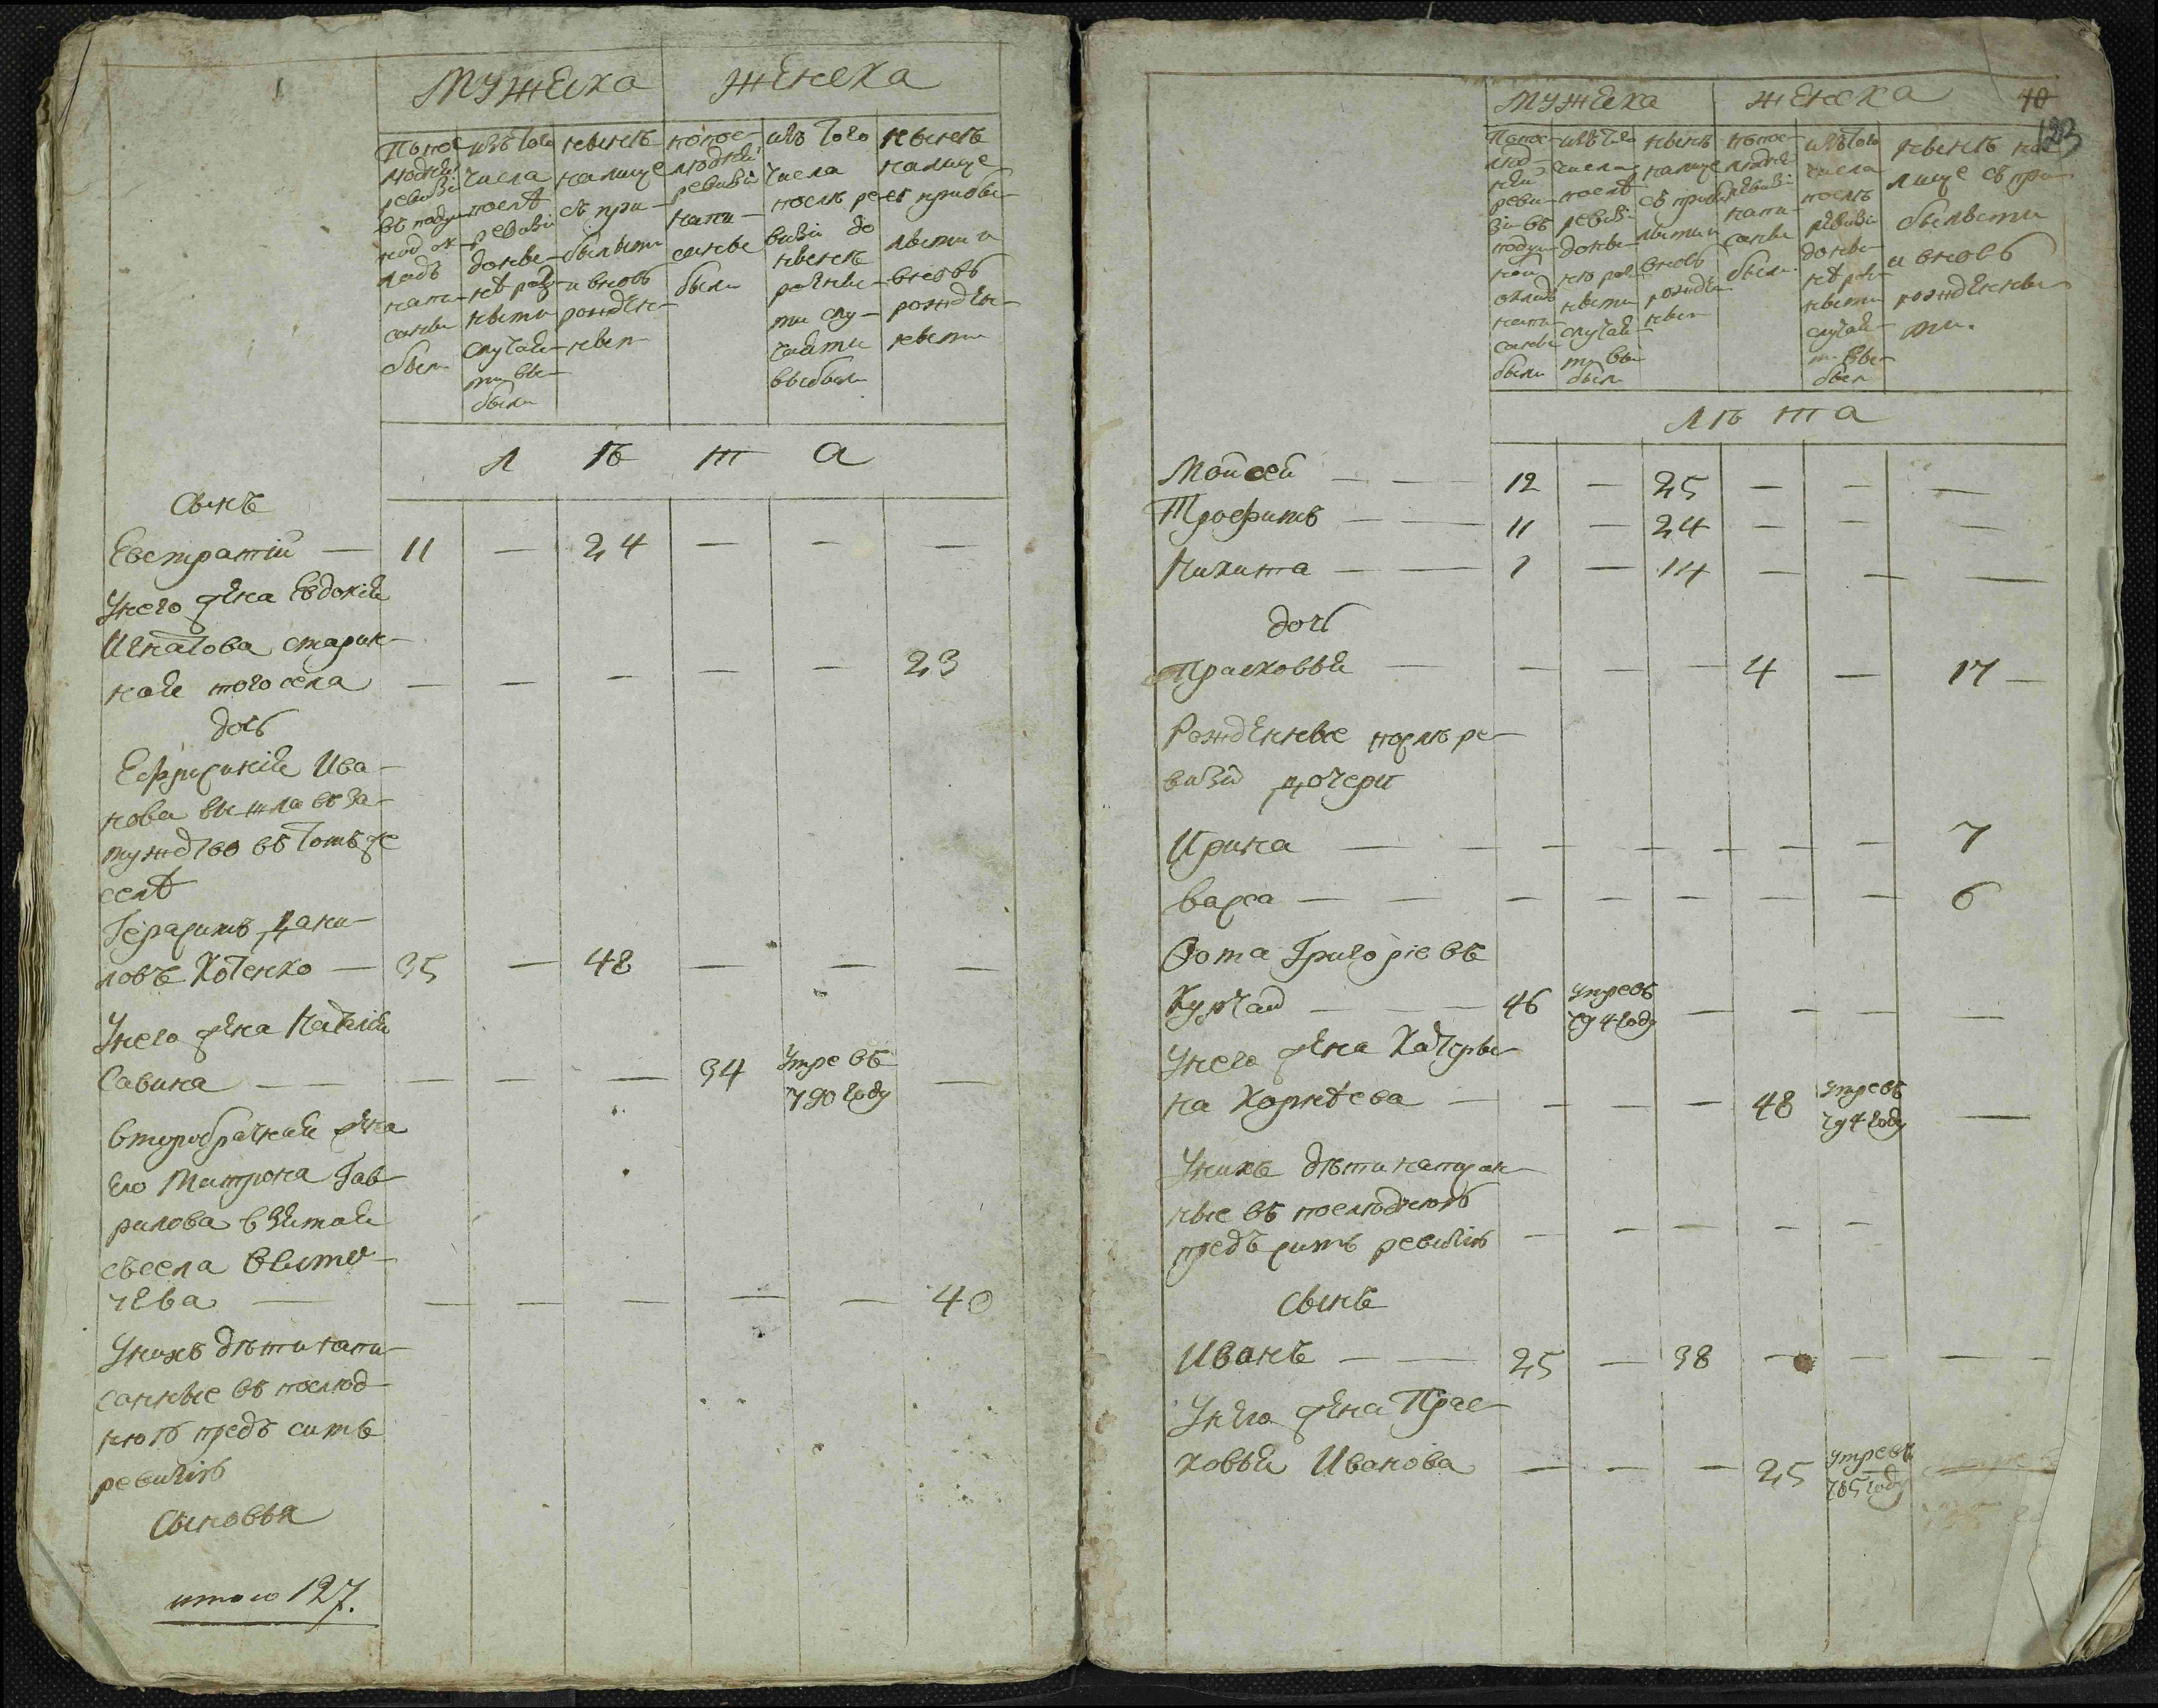 Мужеска
Женска
По пос-
людней
ревизи
въ подуш-
ной ок-
ладъ
напи-
саны
были
изъ того
числа
послѣ
ревизіи
до ны-
нѣ раз-
ными
случаи-
ми вы-
были
нынѣ
налице
съ при-
былыми
и вновь
рожден-
ными
по пос-
людней
ревизіи
напи-
саны
были
изъ того
числа
послѣ ре-
визіи до
нынѣ
разны-
ми слу-
чаями
выбыли
нынѣ
налице
съ прибы-
лыми и
вновь
рожден-
ными
Л ѣ т а
Сынъ
Евстратій — 11 — 24 — — —
У него жена Евдокія
Игнатова старин-
ная того села — — — — — 23
дочь
Ефросинія Ива-
нова вышла въ за-
мужство въ томъ же
селѣ
Герасимъ Дани-
ловъ Котенко — 35 — 48 — — —
У него жена Наталія
Савина — — — — 34 умре въ 790 году —
Второбрачная жена
его Матрона Гав-
рилова взятая
съ села
чева — — — — — — 40
У нихъ дѣти напи-
санные въ послюд-
нюю предъ симъ
ревизію
Сыновья
итого 127.
Мужеска
Женска
40
123
По пос-
люд-
ней
реви-
зіи въ
подуш-
ной
окладъ
напи-
саны
были
изъ того
числа
послѣ
ревизіи
до ны-
нѣ раз-
ными
случаи-
ми вы-
были
нынѣ
налице
съ прибы-
лыми и
вновь
рожден-
ными
по пос-
людней
ревизіи
напи-
саны
были
изъ того
числа
послѣ
ревизіи
до ны-
нѣ раз-
ными
случаи-
ми вы-
были
нынѣ на-
лице съ при-
былыми
и вновь
рожденны-
ми.
Л ѣ т а
Мойсей — — — 12 — 25 — — —
Трофимъ — — 11 — 24 — — —
Никита — — 1 — 14 — — —
дочь
Прасковья — — — — 4 — 17 —
Рожденные послѣ ре-
визіи дочери
Ирина — — — — — — — — 7
Варка — — — — — — — — 6
Ѳома Григоріевъ
Курчай — — 46 умре въ 794 году — — — —
У него жена Катери-
на Корнѣева — — — — 48 умре въ 794 году —
У нихъ дѣти написан-
ные въ послюднюю
предъ симъ ревизію — — — — —
Сынъ
Иванъ — — 25 — 38 — — — —
У него жена Прас-
ковья Иванова — — — 25 умре въ 785 году